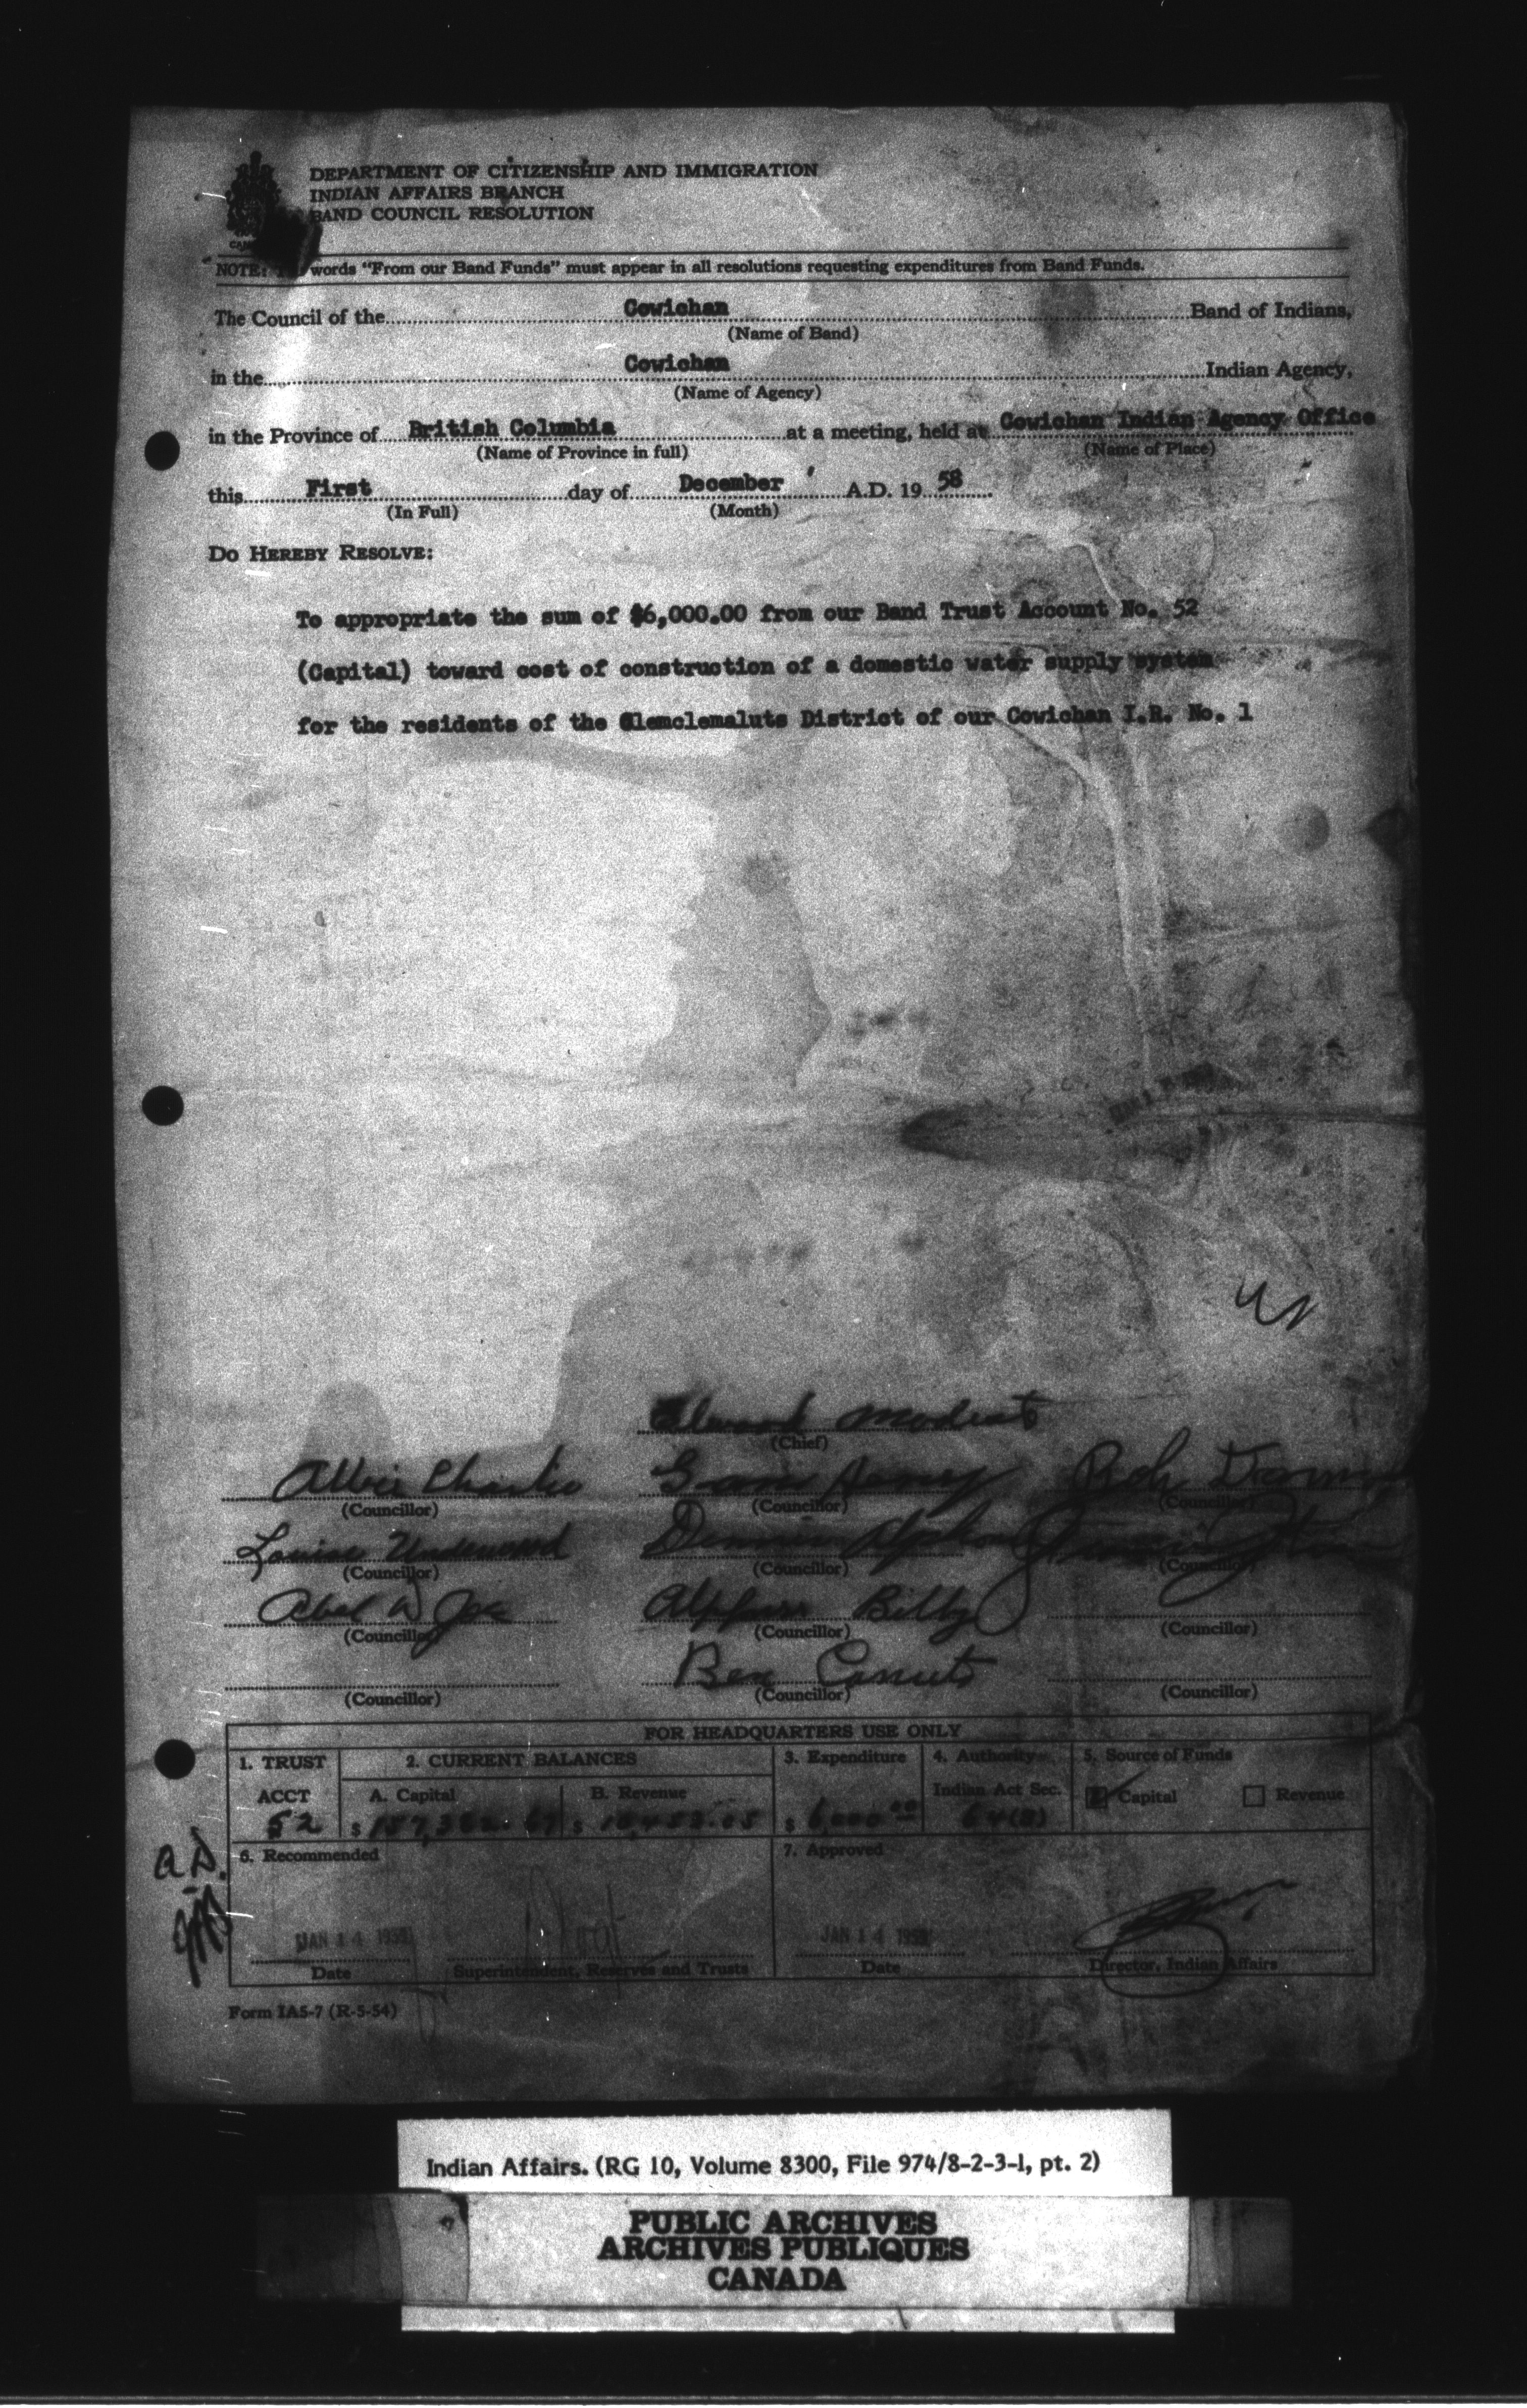 DEPARTMENT OF CITIZENSHIP AND IMMIGRATION
INDIAN AFFAIRS BRANCH
BAND COUNCIL RESOLUTION
NOTE: words "From our Band Funds" must appear in all resolutions requesting expenditures from Band Funds.
The Council of the Cowichan Band of Indians,
(Name of Band)
in the Cowichan Indian Agency,
(Name of Agency)
in the Province of British Columbia at a meeting, held at Cowichan Indian Agency Office
(Name of Province in full) (Name of Place)
this First day of December A.D. 19 58
(In Full) (Month)
DO HEREBY RESOLVE:
To appropriate the sum of $6,000.00 from our Band Trust Account No. 52
(Capital) toward cost of construction of a domestic water supply system
for the residents of the Clemclemaluts District of our Cowichan I.R. No. 1
Modeste
(Chief)
Albie Charlie
(Councillor) (Councillor) (Councillor)
Louise Underwood
(Councillor) (Councillor) (Councillor)
Abel D Joe Billy
(Councillor) (Councillor) (Councillor)
Ben Canute
(Councillor) (Councillor) (Councillor)
FOR HEADQUARTERS USE ONLY
1. TRUST 2. CURRENT BALANCES 3. Expenditure 4. Authority 5. Source of Funds
ACCT A. Capital B. Revenue Indian Act Sec. Capital Revenue
52 $ $ $ 6,000.00
6. Recommended 7. Approved
A.D.
JAN 14 JAN 14
Date Superintendent, Reserves and Trusts Date Director, Indian Affairs
Form IA5-7 (R-5-54)
Indian Affairs. (RG 10, Volume 8300, File 974/8-2-3-1, pt. 2)
PUBLIC ARCHIVES
ARCHIVES PUBLIQUES
CANADA